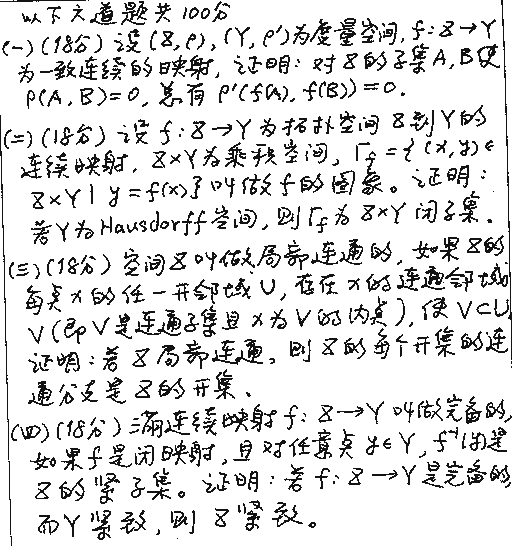 以下六道题共100分
(一)(18分)设(X,ρ),(Y,ρ')为度量空间,f:X→Y
为一致连续的映射,证明:对X的子集A,B使
ρ(A,B)=0,总有ρ'(f(A),f(B))=0.
(二)(18分)设f:X→Y为拓扑空间X到Y的
连续映射,X×Y为乘积空间,Γf={(x,y)∈
X×Y|y=f(x)}叫做f的图象。证明:
若Y为Hausdorff空间,则Γf为X×Y闭子集.
(三)(18分)空间X叫做局部连通的,如果X的
每点x的任一开邻域U,存在x的连通邻域
V(即V是连通子集且x为V的内点),使V⊂U
证明:若X局部连通,则X的每个开集的连
通分支是X的开集.
(四)(18分)满连续映射f:X→Y叫做完备的,
如果f是闭映射,且对任意点y∈Y,f⁻¹(y)是
X的紧子集。证明:若f:X→Y是完备的,
而Y紧致,则X紧致。